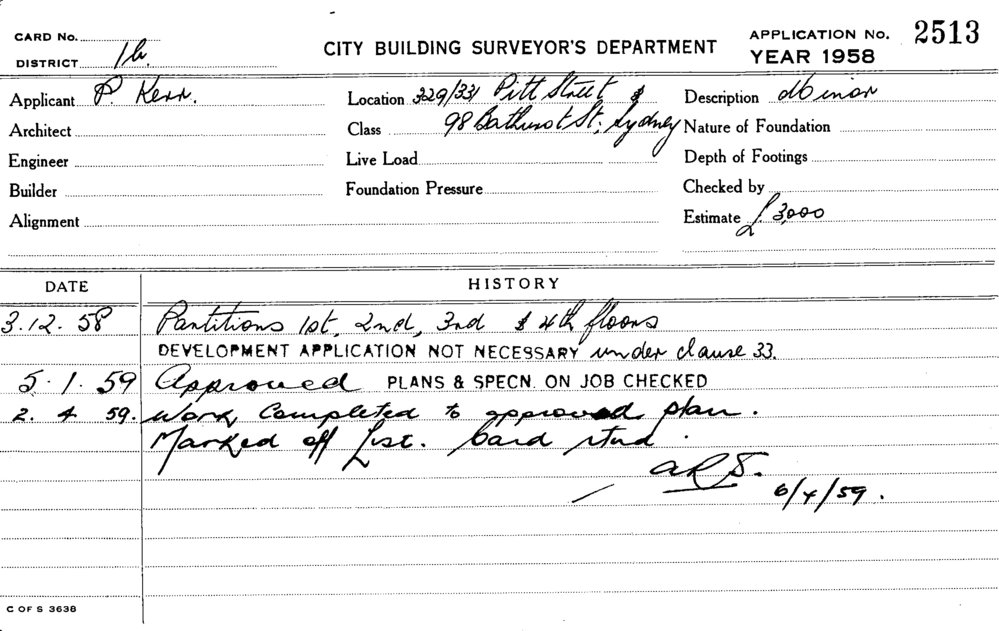 CARD No.
DISTRICT 1b.
CITY BUILDING SURVEYOR'S DEPARTMENT
APPLICATION No. 2513
YEAR 1958
Applicant P. Kerr.
Location 329/331 Pitt Street &
98 Bathurst St; Sydney
Description
Architect
Class
Nature of Foundation
Engineer
Live Load
Depth of Footings
Builder
Foundation Pressure
Checked by
Alignment
Estimate £ 3,000
DATE HISTORY
3.12.58 Partitions 1st, 2nd, 3rd & 4th floors
DEVELOPMENT APPLICATION NOT NECESSARY under clause 33.
5.1.59 Approved PLANS & SPECN. ON JOB CHECKED
2.4 59. Work, Completed to approved plan.
Marked off List. Card stnd.
6/4/59.
C OF S 3638